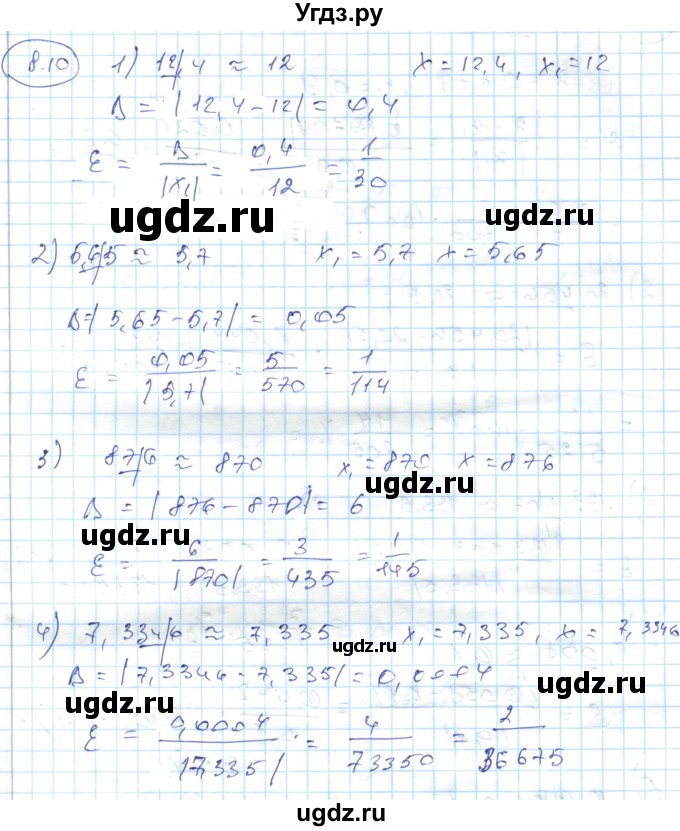 Угдз.ру
8.10 1) 12,4 ≈ 12 x = 12,4, x₁ = 12
Δ = |12,4 - 12| = 0,4
ε = Δ/|x₁| = 0,4/12 = 1/30
ugdz.ru ugdz.ru
2) 5,65 ≈ 5,7 x₁ = 5,7 x = 5,65
Δ = |5,65 - 5,7| = 0,05
ε = 0,05/|5,7| = 5/570 = 1/114
3) 876 ≈ 870 x₁ = 870 x = 876
ugdz.ru
Δ = |876 - 870| = 6
ugdz.ru
ε = 6/|870| = 3/435 = 1/145
4) 7,3346 ≈ 7,335 x₁ = 7,335, x = 7,3346
ugdz.ru
Δ = |7,3346 - 7,335| = 0,0004
ugdz.ru ugdz.ru
ε = 0,0004/|7,335| = 4/73350 = 2/36675
ugdz.ru